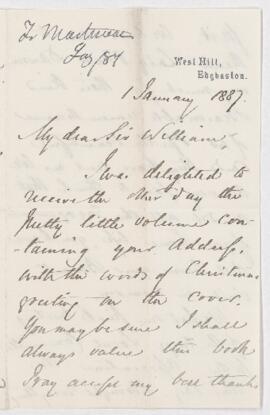 West Hill,
Edgbaston.
1 January 1887.
My dear Sir William,
I was delighted to
receive the other day the
pretty little volume con-
taining your Address,
with the words of Christmas
greeting on the cover.
You may be sure I shall
always value this book
Pray accept my best thanks